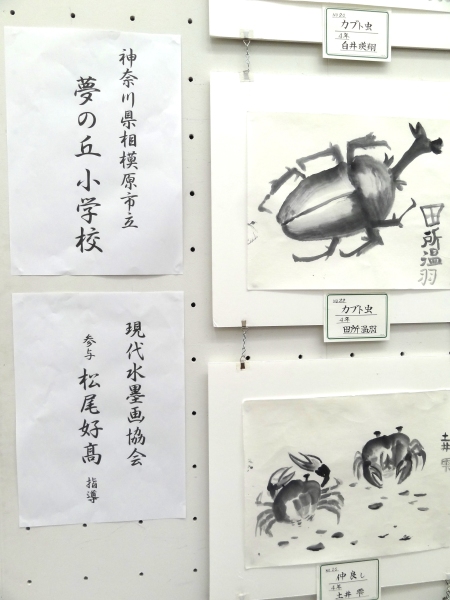 神奈川県相模原市立
夢の丘小学校
現代水墨画協会
参与 松尾好髙 指導
カブト虫
4年
白井瑛翔
田所温羽
カブト虫
4年
田所温羽
土井
仲良し
4年
土井 雫